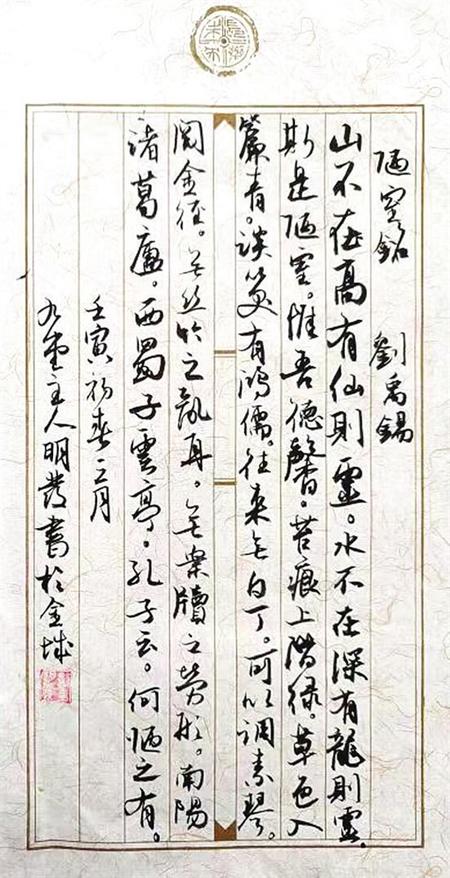 陋室銘 劉禹錫
山不在高有仙則靈。水不在深有龍則靈。
斯是陋室。惟吾德馨。苔痕上階绿。草色入
簾青。談笑有鴻儒。往來無白丁。可以調素琴。
閱金经。無丝竹之亂耳。無案牘之勞形。南陽
諸葛廬。西蜀子雲亭。孔子云。何陋之有。
壬寅初春二月
主人明發書於金城